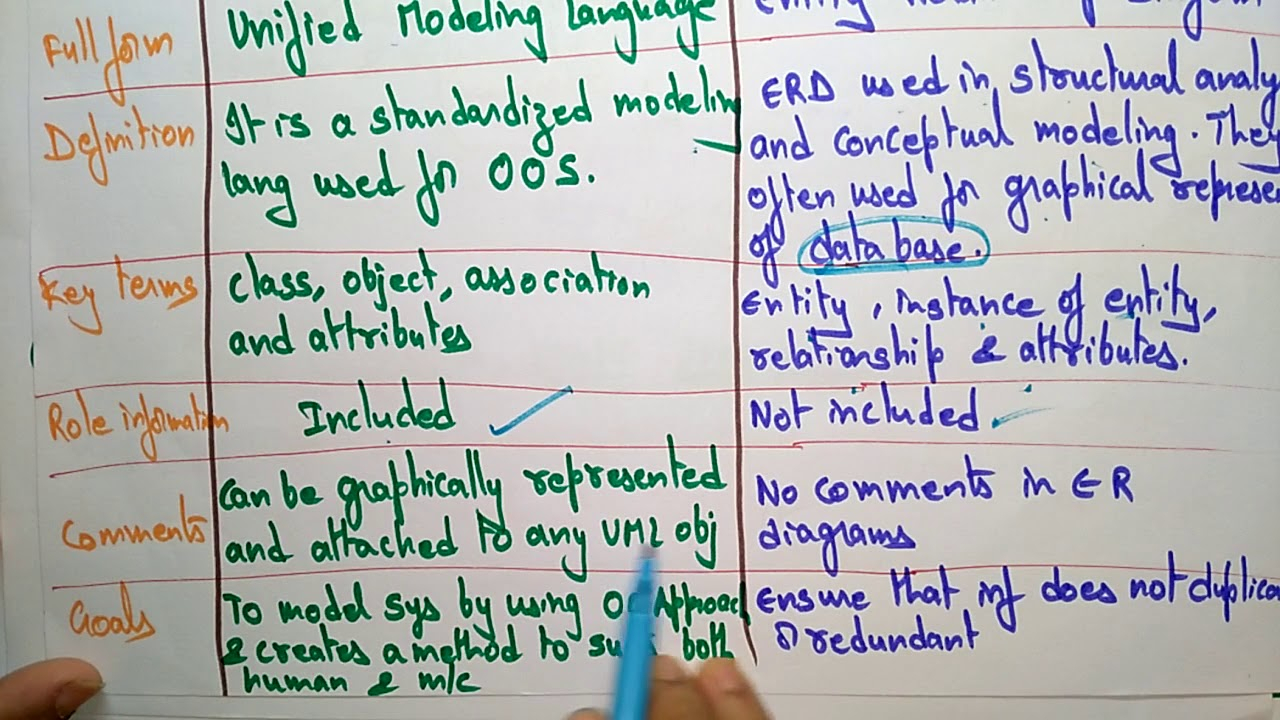 Full form
Unified Modeling Language
Definition
It is a standardized modeling
lang used for OOS.
ERD used in structural analy
and conceptual modeling. They
often used for graphical represe
of database.
Key terms
class, object, association
and attributes
Entity, instance of entity,
relationship & attributes.
Role information
Included
Not included
Comments
can be graphically represented
and attached to any UML obj
No comments in ER
diagrams
Goals
To model sys by using OO Approach
& creates a method to both
human & m/c
Ensure that inf does not duplica
or redundant